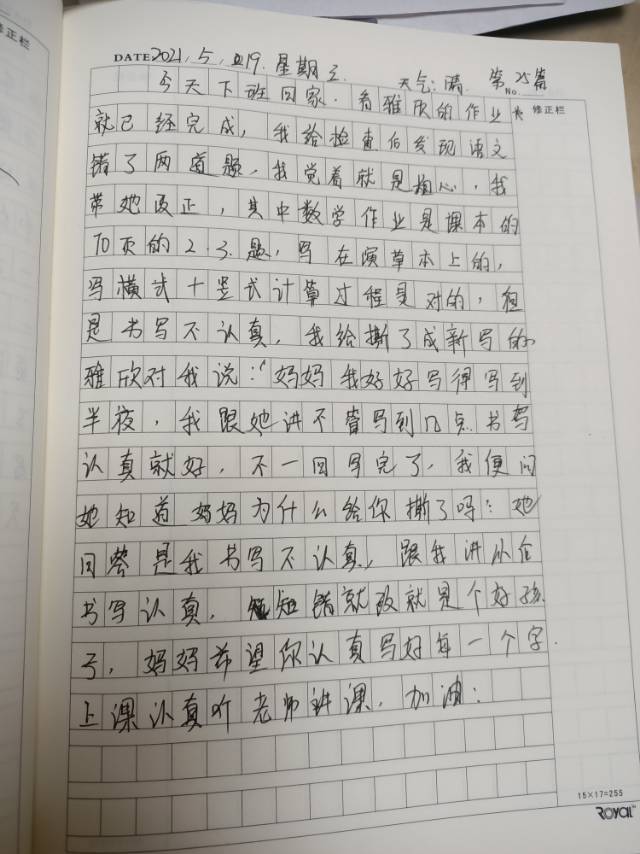 修正栏
DATE 2021.5.19. 星期三. 天气:晴 第25篇
No.
修正栏
今天下班回家.看雅欣的作业
就已经完成,我给检查后发现语文
错了两道题.我觉着就是粗心,我
带她改正,其中数学作业是课本的
70页的2.3.题,写在演草本上的,
写横式十竖式计算过程是对的,但
是书写不认真.我给撕了成新写的
雅欣对我说:“妈妈我好好写得写到
半夜,我跟她讲不管写到几点书写
认真就好,不一回写完了,我便问
她知道妈妈为什么给你撕了吗:她
回答是我书写不认真,跟我讲从今
书写认真.知错就改就是个好孩
子,妈妈希望你认真写好每一个字.
上课认真听老师讲课.加油:
15×17=255
ROYAL